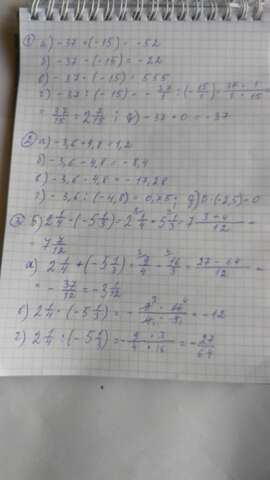 ① а) -37 + (-15) = -52
б) -37 - (-15) = -22
в) -37 · (-15) = 555
г) -37 : (-15) = - 37/1 : (- 15/1) = 37 · 1 / 1 · 15
= 37/15 = 2 7/15 ; д) -37 + 0 = -37
② а) -3,6 + 4,8 = 1,2
б) -3,6 - 4,8 = -8,4
в) -3,6 · 4,8 = -17,28
г) -3,6 : (-4,8) = 0,75 ; д) 0 : (-2,5) = 0
③ б) 2 1/4 - (-5 1/3) = 2 1/4 + 5 1/3 = 7 3 + 4 / 12 =
= 7 7/12
а) 2 1/4 + (-5 1/3) = 9/4 - 16/3 = 27 - 64 / 12 =
= - 37/12 = -3 1/12
в) 2 1/4 · (-5 1/3) = - 9 · 16 / 4 · 3 = -12
г) 2 1/4 : (-5 1/3) = - 9 · 3 / 4 · 16 = - 27/64